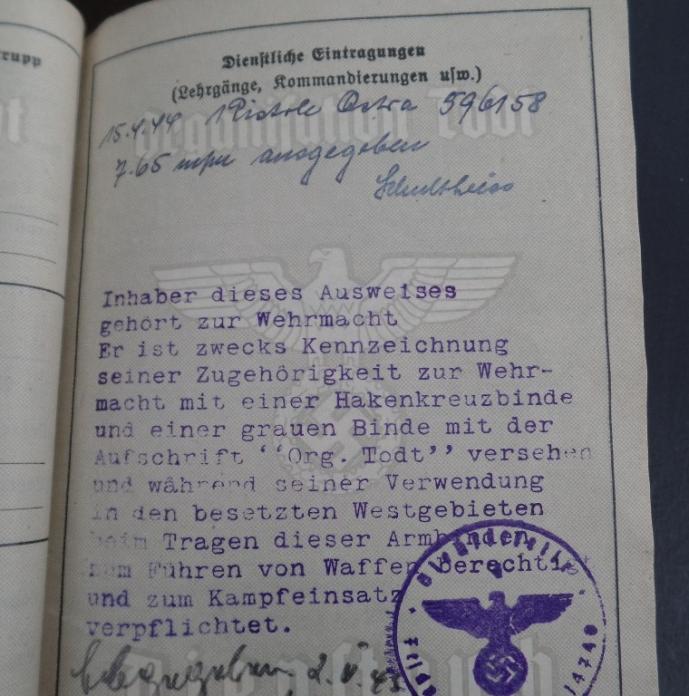 rupp
Dienstliche Eintragungen
(Lehrgänge, Kommandierungen usw.)
15.4.44 1 Pistole Astra 596158
7.65 mm ausgegeben
Schultheiss
Organisation Todt
Inhaber dieses Ausweises
gehört zur Wehrmacht
Er ist zwecks Kennzeichnung
seiner Zugehörigkeit zur Wehr-
macht mit einer Hakenkreuzbinde
und einer grauen Binde mit der
Aufschrift ''Org. Todt'' versehen
und während seiner Verwendung
in den besetzten Westgebieten
beim Tragen dieser Armbinden
zum Führen von Waffen berechtigt
und zum Kampfeinsatz
verpflichtet.
Dienstbuch
14740